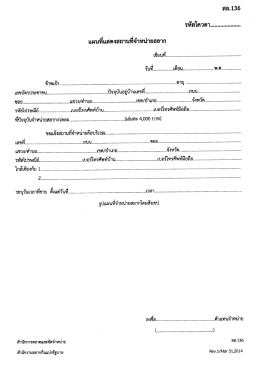 สล.136
รหัสโควตา....................
แผนที่แสดงสถานที่จำหน่ายสลาก
เขียนที่....................
วันที่............เดือน....................พ.ศ.............
ข้าพเจ้า........................................อายุ....................
เลขบัตรประชาชน....................ปัจจุบันอยู่บ้านเลขที่....................ถนน....................
ซอย....................แขวง/ตำบล....................เขต/อำเภอ....................จังหวัด....................
รหัสไปรษณีย์....................เบอร์โทรศัพท์บ้าน....................เบอร์โทรศัพท์มือถือ....................
ที่ปัจจุบันจำหน่ายสลากงวดละ....................(เล่มละ 4,000 บาท)
ขอแจ้งสถานที่จำหน่ายคือบริเวณ....................
เลขที่....................ถนน....................ซอย....................
แขวง/ตำบล....................เขต/อำเภอ....................จังหวัด....................
รหัสไปรษณีย์....................เบอร์โทรศัพท์บ้าน....................เบอร์โทรศัพท์มือถือ....................
ใกล้เคียงกับ 1....................
2....................
ระบุวันเวลาที่ขาย ตั้งแต่วันที่....................เวลา....................
รูปแผนที่จำหน่ายสลากโดยสังเขป
ลงชื่อ....................ตัวแทนจำหน่าย
(....................)
สำนักการตลาดและจัดจำหน่าย
สล.136
สำนักงานสลากกินแบ่งรัฐบาล
Rev.1/Mar 31,2014